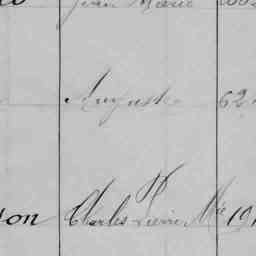 Jean Marie
Auguste 62
son Charles Pierre Mie 191